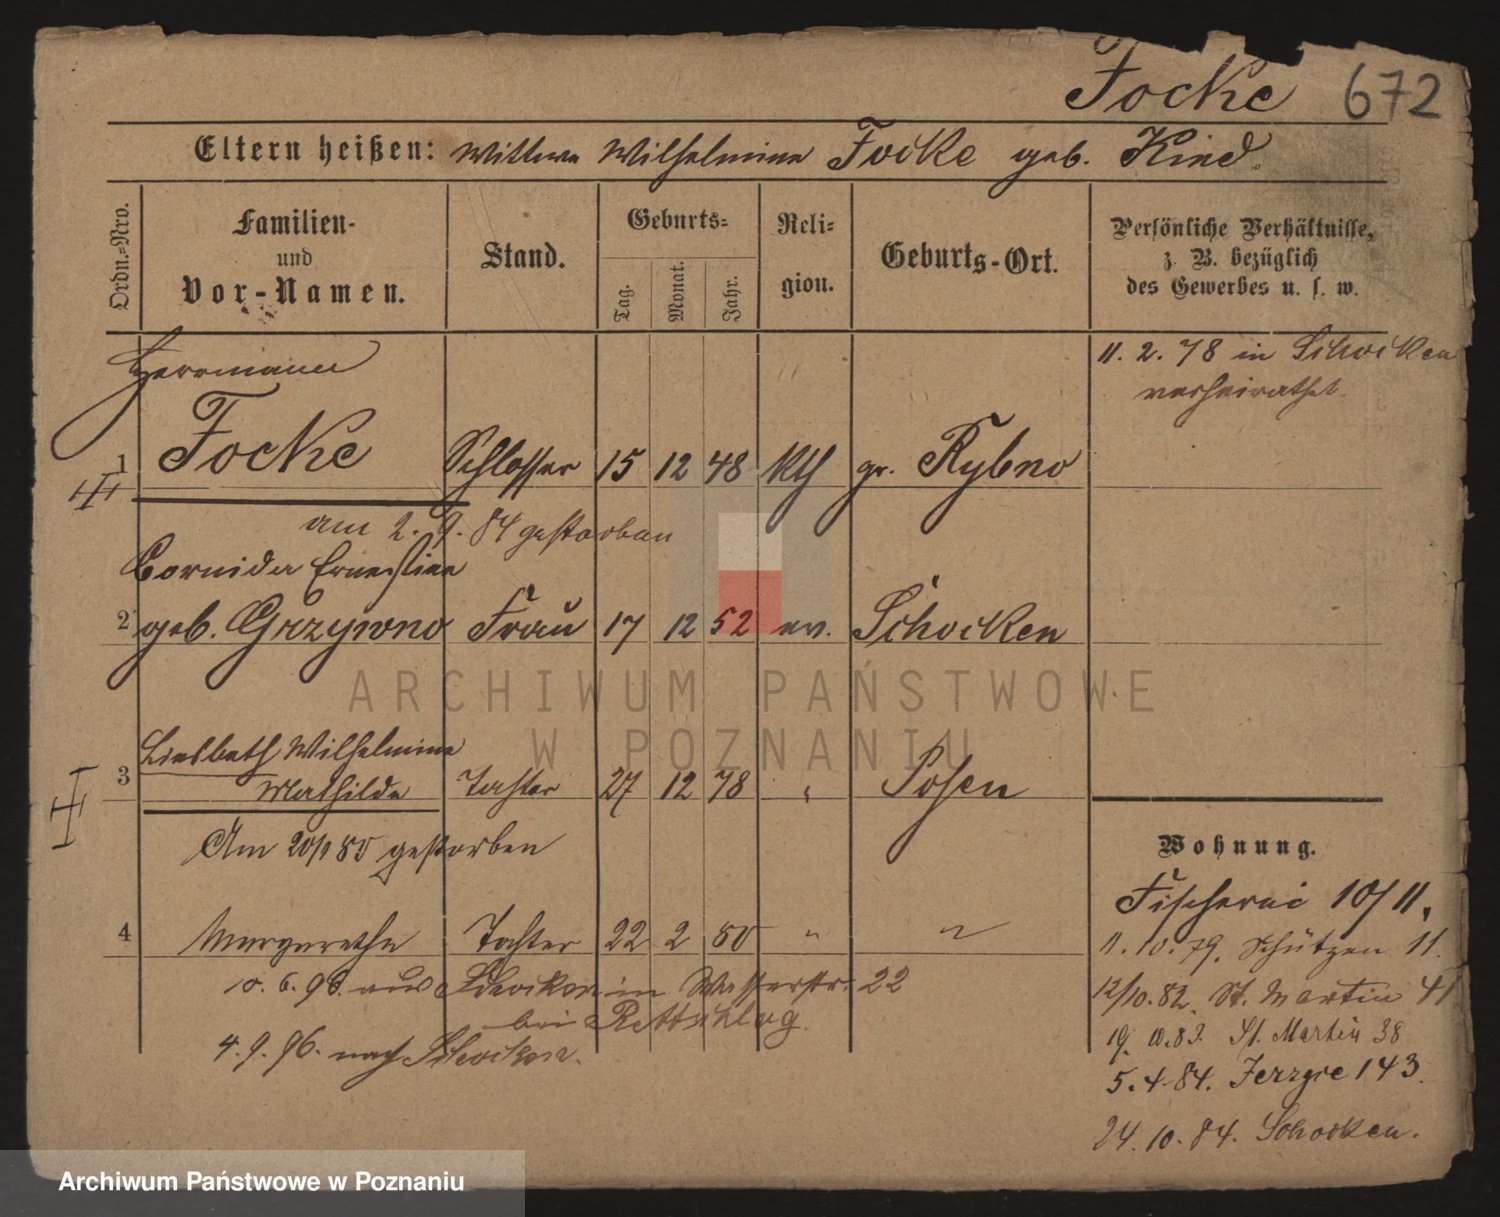 Focke 672
Eltern heißen: Wittwe Wilhelmine Focke geb. Kind.
Ordn.-Nro.
Familien- und Vor-Namen.
Stand.
Geburts-
Tag. Monat. Jahr.
Reli-
gion.
Geburts-Ort.
Persönliche Verhältnisse,
z. B. bezüglich
des Gewerbes u. s. w.
11. 2. 78 in Schocken
verheirathet.
Herrmann
1 Focke Schlosser 15 12 48 kth gr. Rybno
am 2. 9. 84 gestorben
Ernestine
2 geb. Grzywno Frau 17 12 52 ev. Schocken
Liesbeth Wilhelmine
3 Mathilde Tochter 27 12 78 " Posen
Am 20/1 80 gestorben
4 Margarethe Tochter 22 2 80 " "
10. 6. 96. aus Schocken in Wasserstr. 22
bei Rettschlag.
4. 9. 96. nach Schocken.
Wohnung.
Fischerei 10/11.
11. 10. 79. Schützen 11.
12/10. 82. St. Martin 41
19. 10. 83. St. Martin 38
5. 4. 84. Jerzyce 143.
24. 10. 84. Schocken.
ARCHIWUM PAŃSTWOWE
W POZNANIU
Archiwum Państwowe w Poznaniu